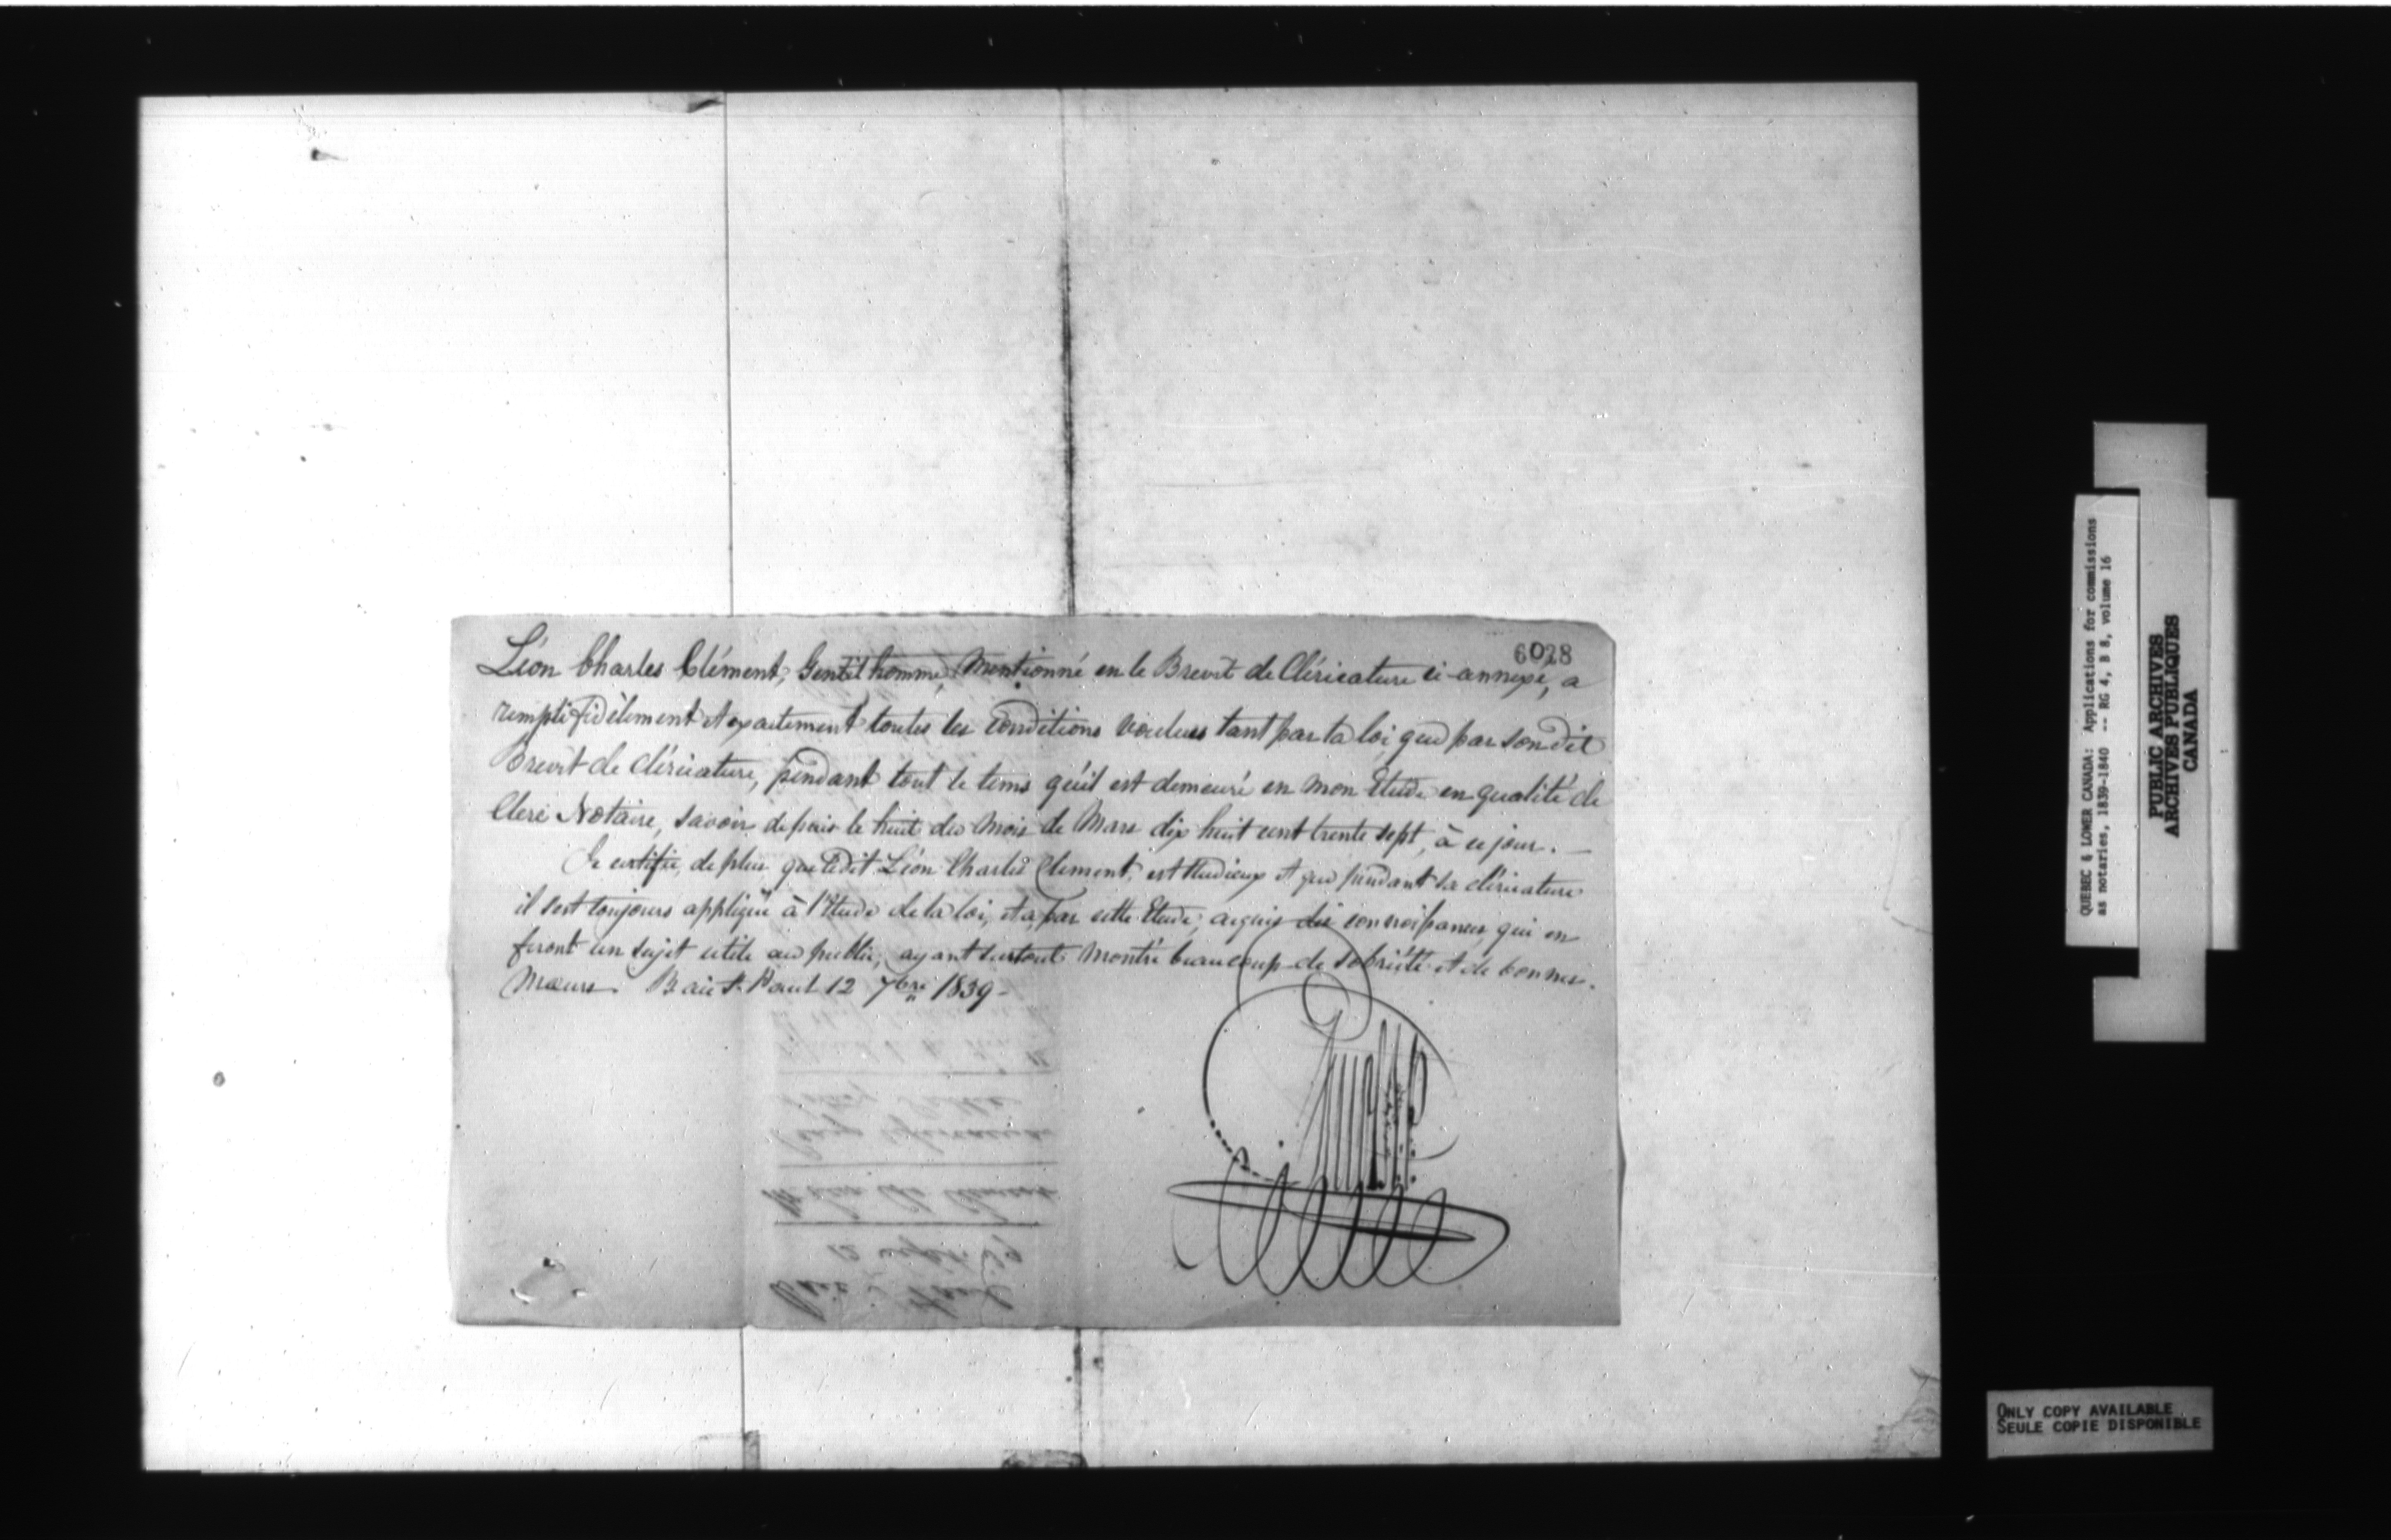 6028
Léon Charles Clément, Gentilhomme, Mentionné en le Brevet de Cléricature ci-annexé, a
rempli fidèlement et exactement toutes les conditions voulues tant par la loi que par son dit
Brevet de Cléricature, pendant tout le tems qu'il est demeuré en mon Etude en qualité de
Clerc Notaire, savoir depuis le huit du mois de Mars dix huit cent trente sept, à ce jour. —
Je certifie, de plus, que ledit Léon Charles Clement, est studieux et que pendant sa cléricature
il s'est toujours appliqué à l'étude de la loi, et a, par cette Etude, acquis des connoissances, qui en
feront un sujet utile au public, ayant surtout montré beaucoup de sobriété et de bonnes
Mœurs. Baie St. Paul 12 7bre 1839 -
QUEBEC & LOWER CANADA: Applications for commissions
as notaries, 1839-1840 -- RG 4, B 8, volume 16
PUBLIC ARCHIVES
ARCHIVES PUBLIQUES
CANADA
ONLY COPY AVAILABLE
SEULE COPIE DISPONIBLE